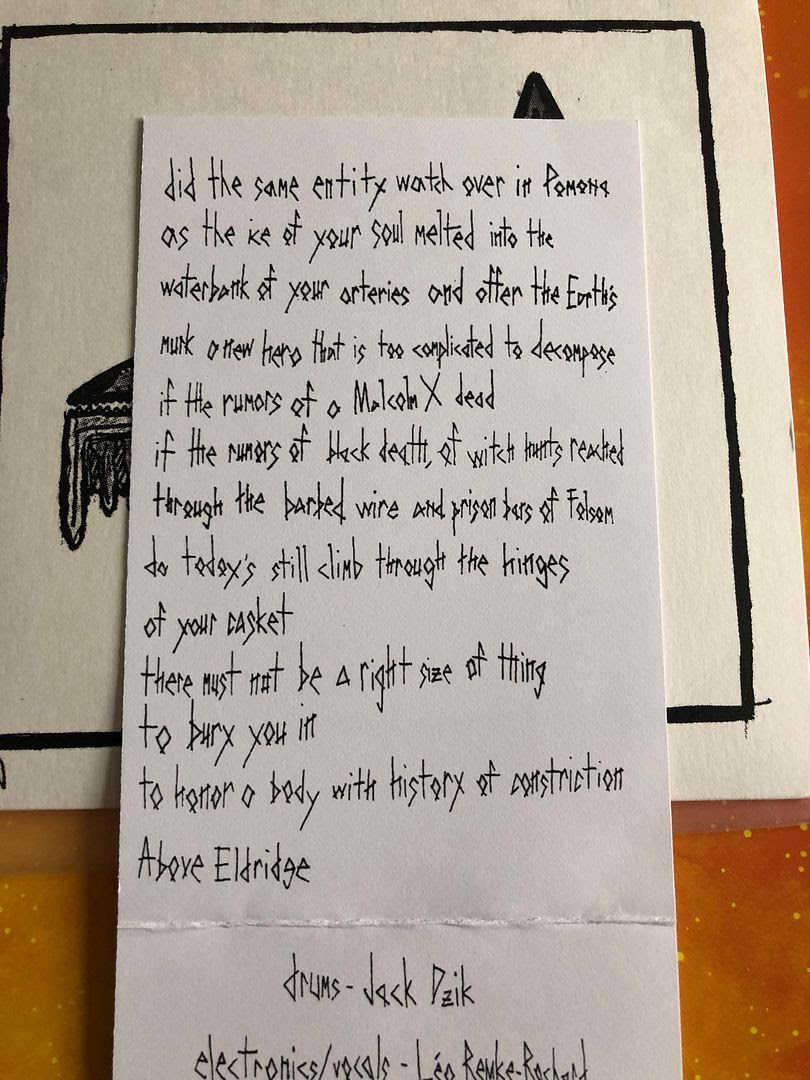 did the same entity watch over in Pomona
as the ice of your soul melted into the
waterbank of your arteries and offer the Earth's
murk a new hero that is too complicated to decompose
if the rumors of a Malcolm X dead
if the rumors of black death, of witch hunts reached
through the barbed wire and prison bars of Folsom
do today's still climb through the hinges
of your casket
there must not be a right size of thing
to bury you in
to honor a body with history of constriction
Above Eldridge
drums - Jack Dzik
electronics/vocals - Léo Remke-Rochard